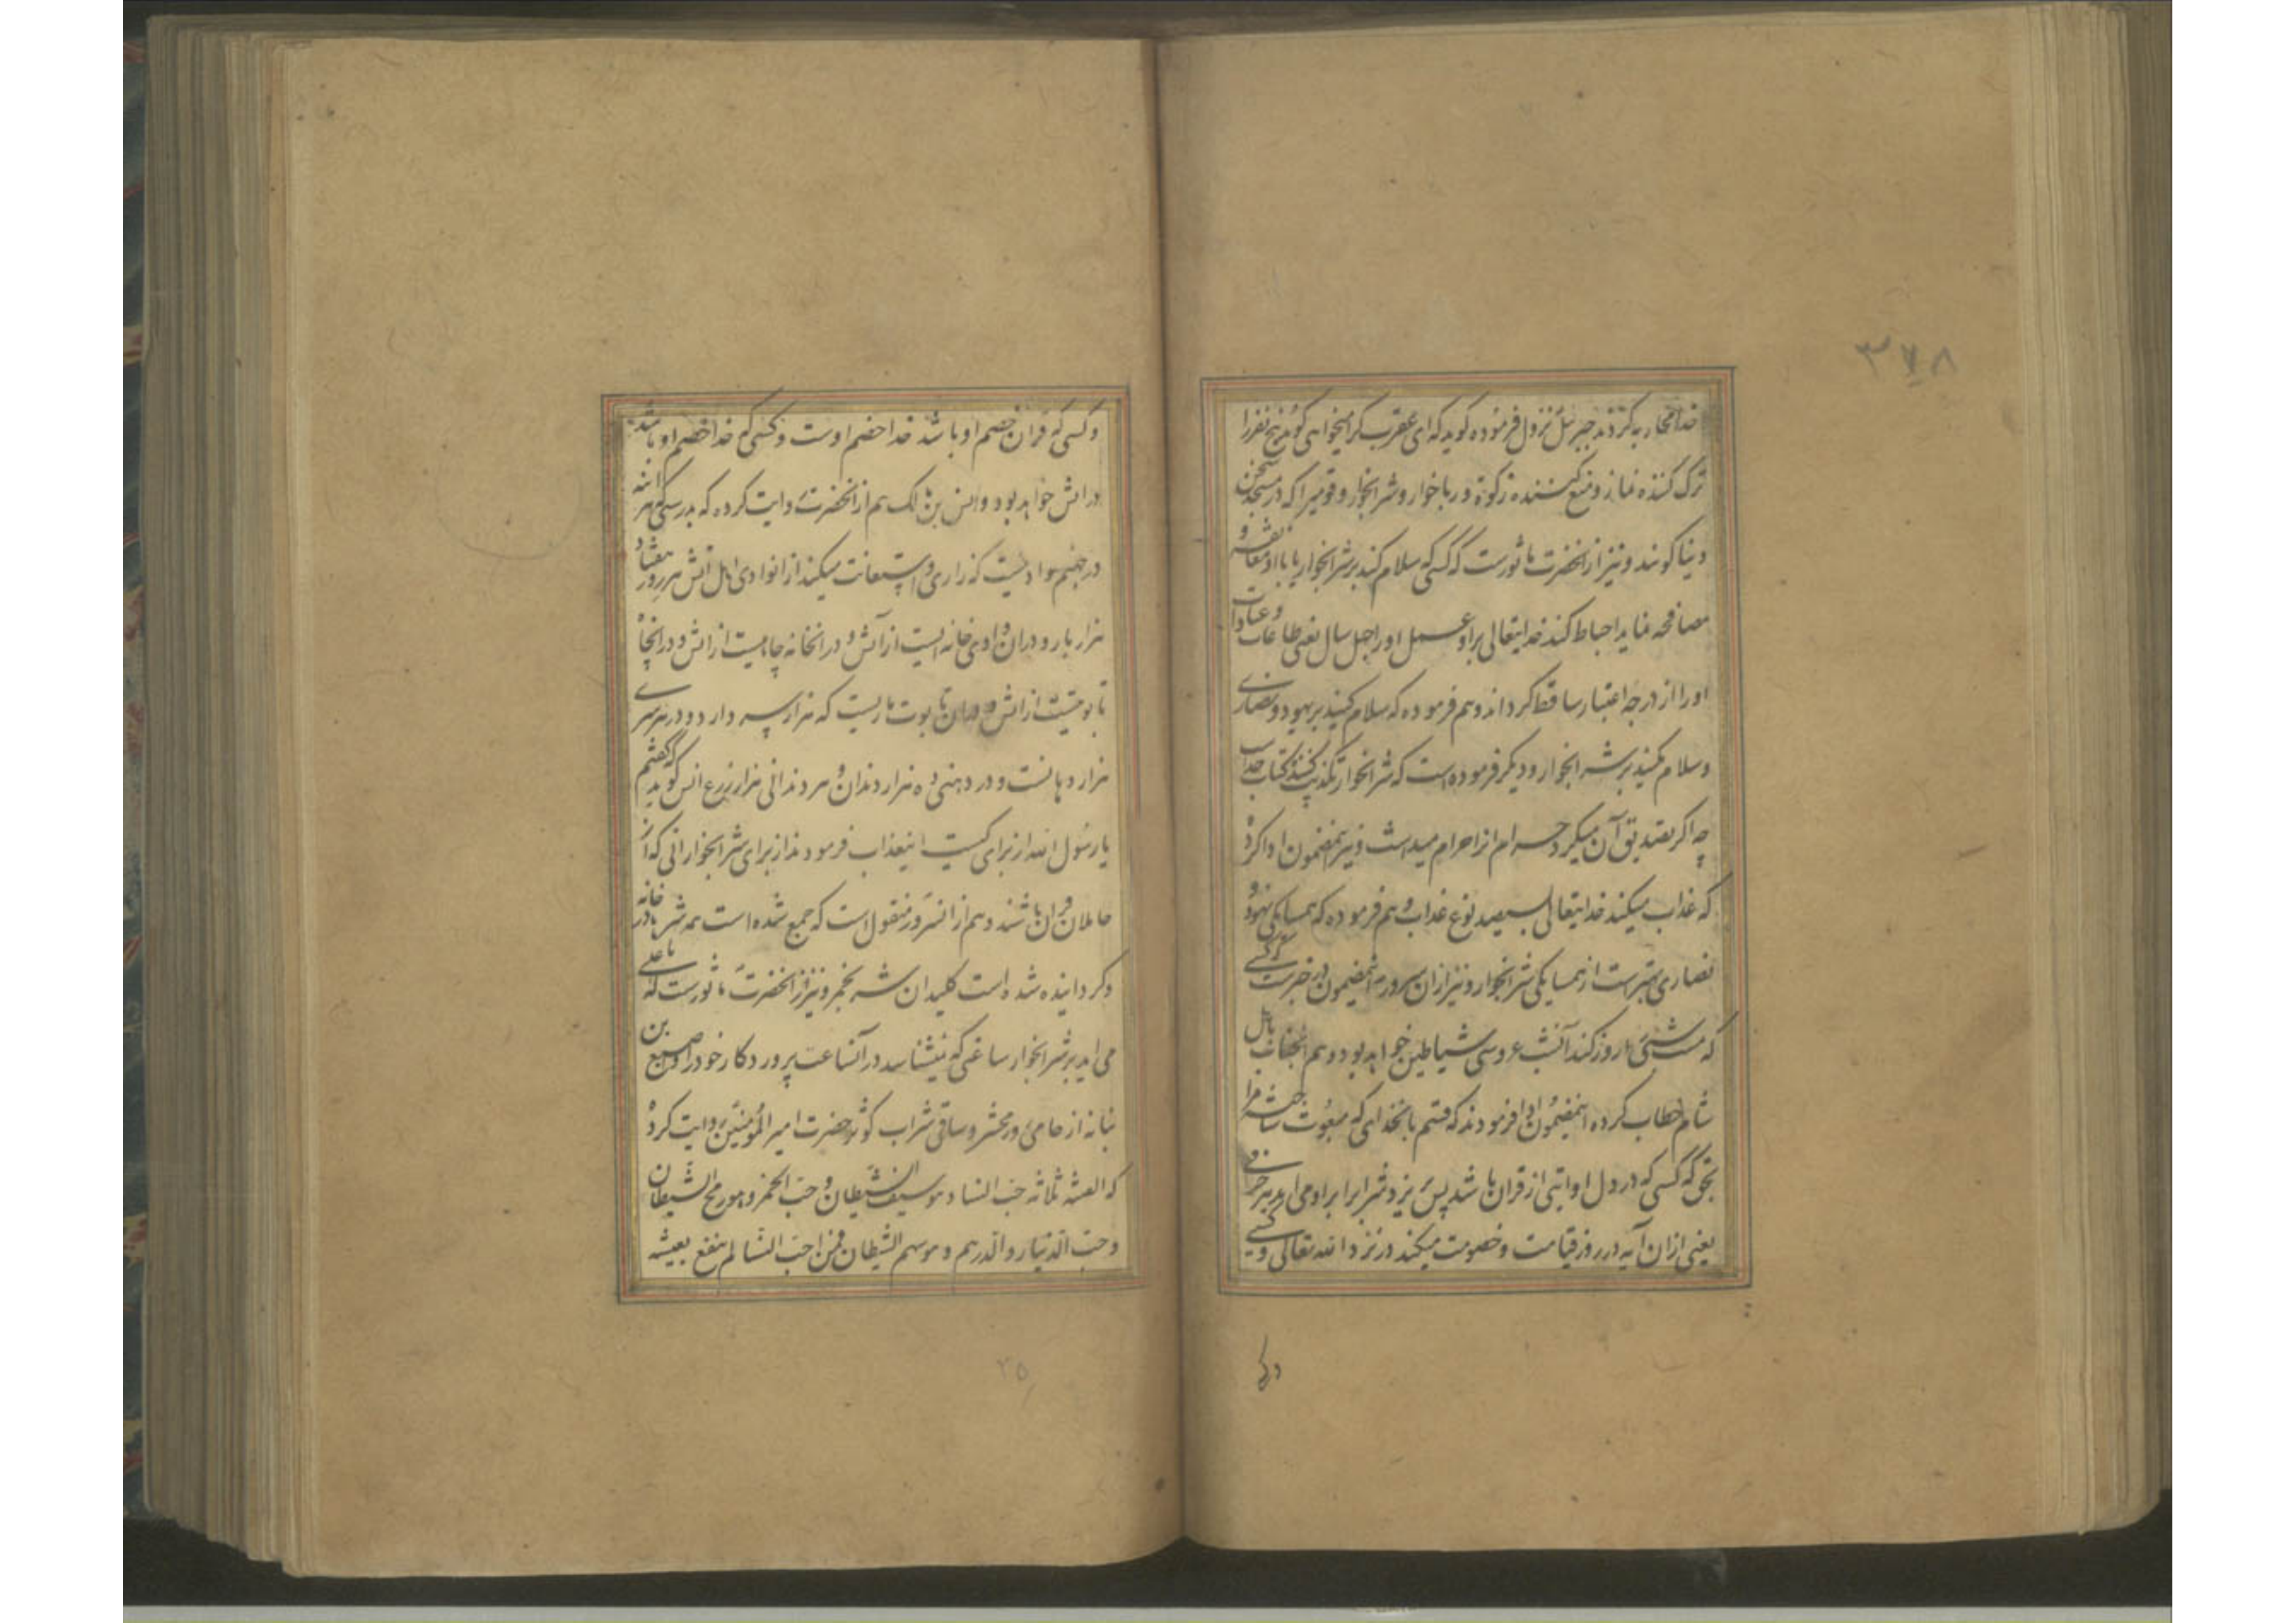 ۳۷۸
خدا محاربه کردند جبرئیل نزول فرموده کوید که ای عقرب کرا میخواهی کوید پنج نفر را
ترک کننده نماز و منع کننده زکوة و رباخوار و شرابخوار و قومیرا که در مسجد سخن
دنیا کویند و نیز از انحضرت ماثورست که کسی که سلام کند بر شرابخوار یا با او معانقه و
مصافحه نماید احباط کند خدایتعالی بر او عمل اورا چهل سال یعنی طاعات و عبادات
اورا از درجه اعتبار ساقط کرداند و هم فرموده که سلام کنید بر یهود و نصاری
و سلام مکنید بر شرابخوار و دیکر فرموده است که شرابخوار تکذیب کننده کتاب خداست
چه اکر تصدیق آن میکرد حرام انرا حرام میداشت و نیز اینمضمون ادا کرده
که عذاب میکند خدایتعالی بسیصد نوع عذاب و هم فرموده که همسایکی یهود و
نصاری بهترست از همسایکی شرابخوار و نیز ازان سرور اینمضمون در خبرست که کسی
که مست شبی را روز کند آنشب عروسی شیاطین خواهد بود و هم انجناب باهل
شام خطاب کرده اینمضمون ادا فرمودند که قسم بانخدائی که مبعوث ساخته مرا
بحق که کسی که در دل او ایتی از قران باشد پس بریزد شرابرا بر او می اید هر حرفی
یعنی ازان آیه در روز قیامت و خصومت میکند در نزد الله تعالی و کسی
و کسی که قران خصم او باشد خدا خصم اوست و کسی که خدا خصم او باشد
در اتش خواهد بود و انس بن مالک هم از انحضرت روایت کرده که بدرستی که
در جهنم وادیست که زاری و استعانت میکنند ازانوادی اهل آتش هر روز هفتاد
هزار بار و دران وادی خانه ایست از آتش و در انخانه چاهیست از اتش و در انچاه
تابوتیست از اتش و دران تابوت ماریست که هزار سر دارد و در هر سری
هزار دهانست و در دهنی ده هزار دندان و هر دندانی هزار ذرع انس کوید که کفتم
یا رسول الله از برای کیست اینعذاب فرمودند از برای شرابخوارانی که از
حاملان قران باشند و هم از انسرور منقول است که جمع شده است همه شرها در خانه
و کردانیده شده است کلید ان شرب خمر و نیز از انحضرت ماثورست که یا علی
می اید بر شرابخوار ساعتی که نمیشناسد در آنساعت پروردکار خود را و اصبغ بن
نباته از حامی محشر و ساقی شراب کوثر حضرت امیر المؤمنین روایت کرده
که الفتنه ثلاثه حب النساء و هو سیف الشیطان و حب الخمر و هو رمح الشیطان
و حب الدینار و الدرهم و هو سهم الشیطان فمن احب النسا لم ینتفع بعیشه
۳۵